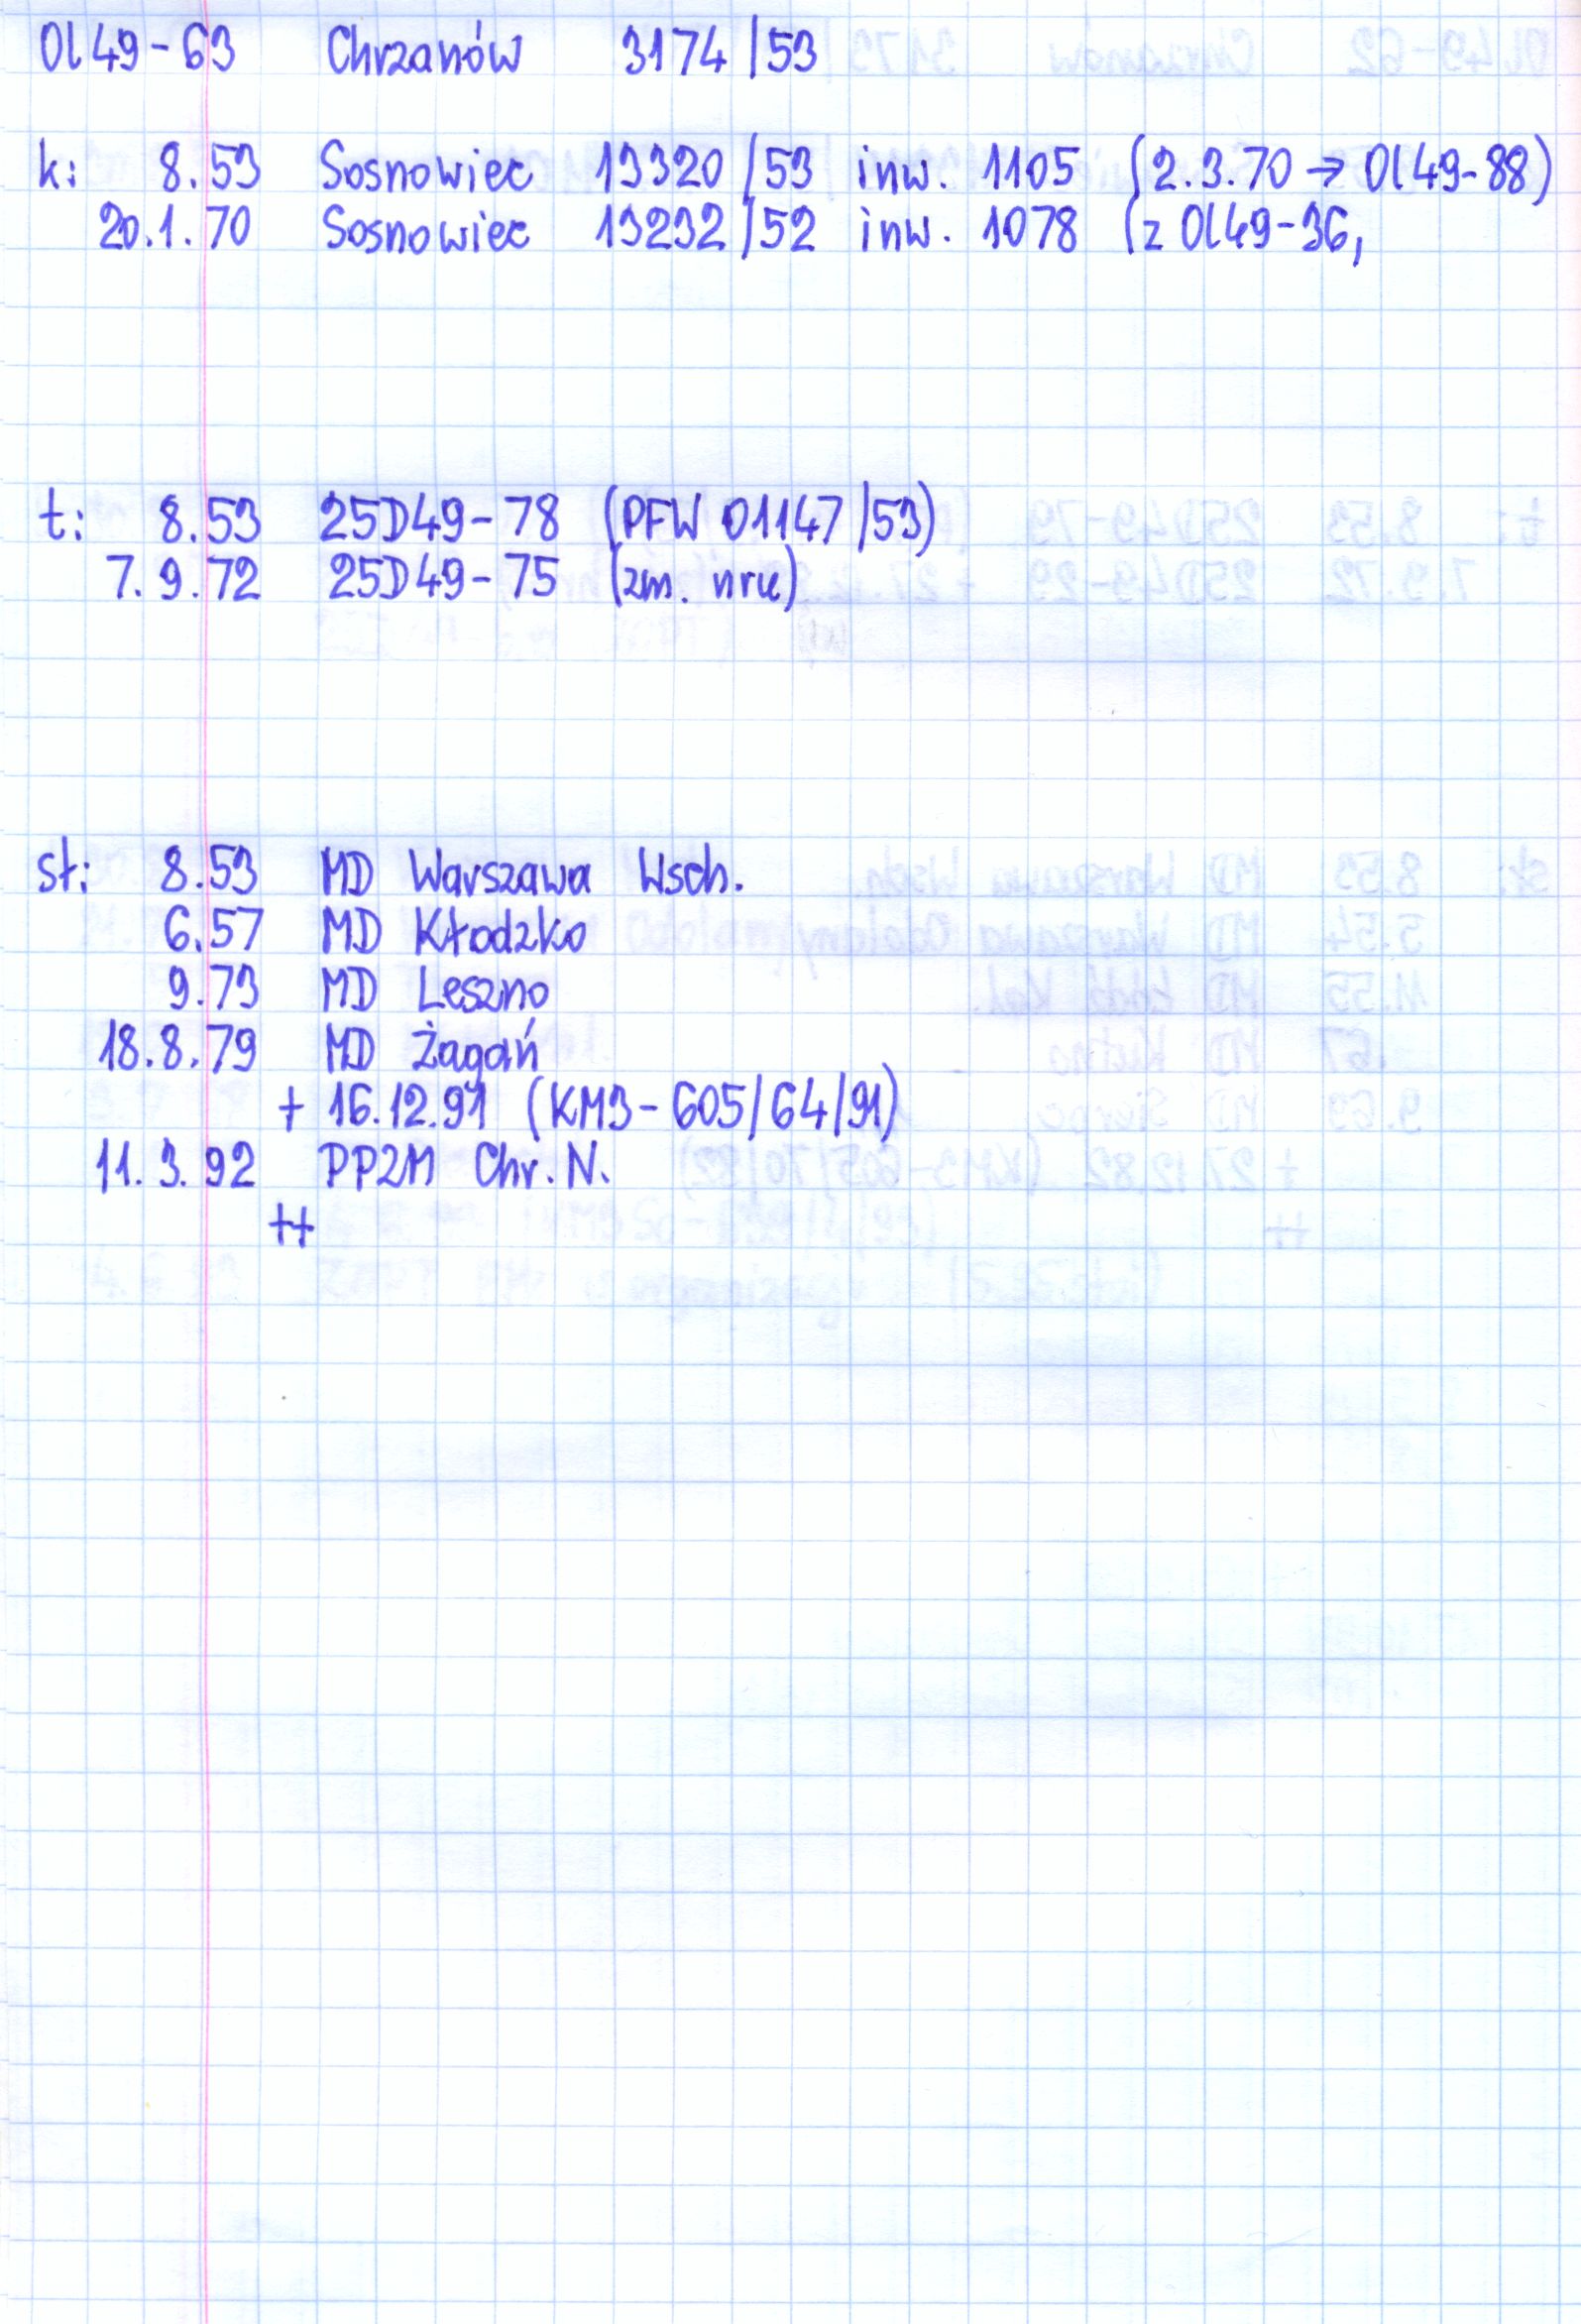 Ol49-63 Chrzanów 3174/53
k: 8.53 Sosnowiec 13320/53 inw. 1105 (2.3.70 → Ol49-88)
20.1.70 Sosnowiec 13232/52 inw. 1078 (z Ol49-36,
t: 8.53 25D49-78 (PFW 01147/53)
7.9.72 25D49-75 (zm. nru)
st: 8.53 MD Warszawa Wsch.
6.57 MD Kłodzko
9.73 MD Leszno
18.8.79 MD Żagań
+ 16.12.91 (KM3-605/64/91)
11.3.92 PPZM Chr. N.
++